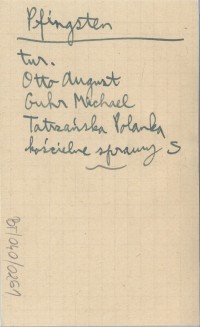 Pfingsten
tur.
Otto August
Guhr Michael
Tatrzańska Polanka
kościelne sprawy S
BT/040/0251